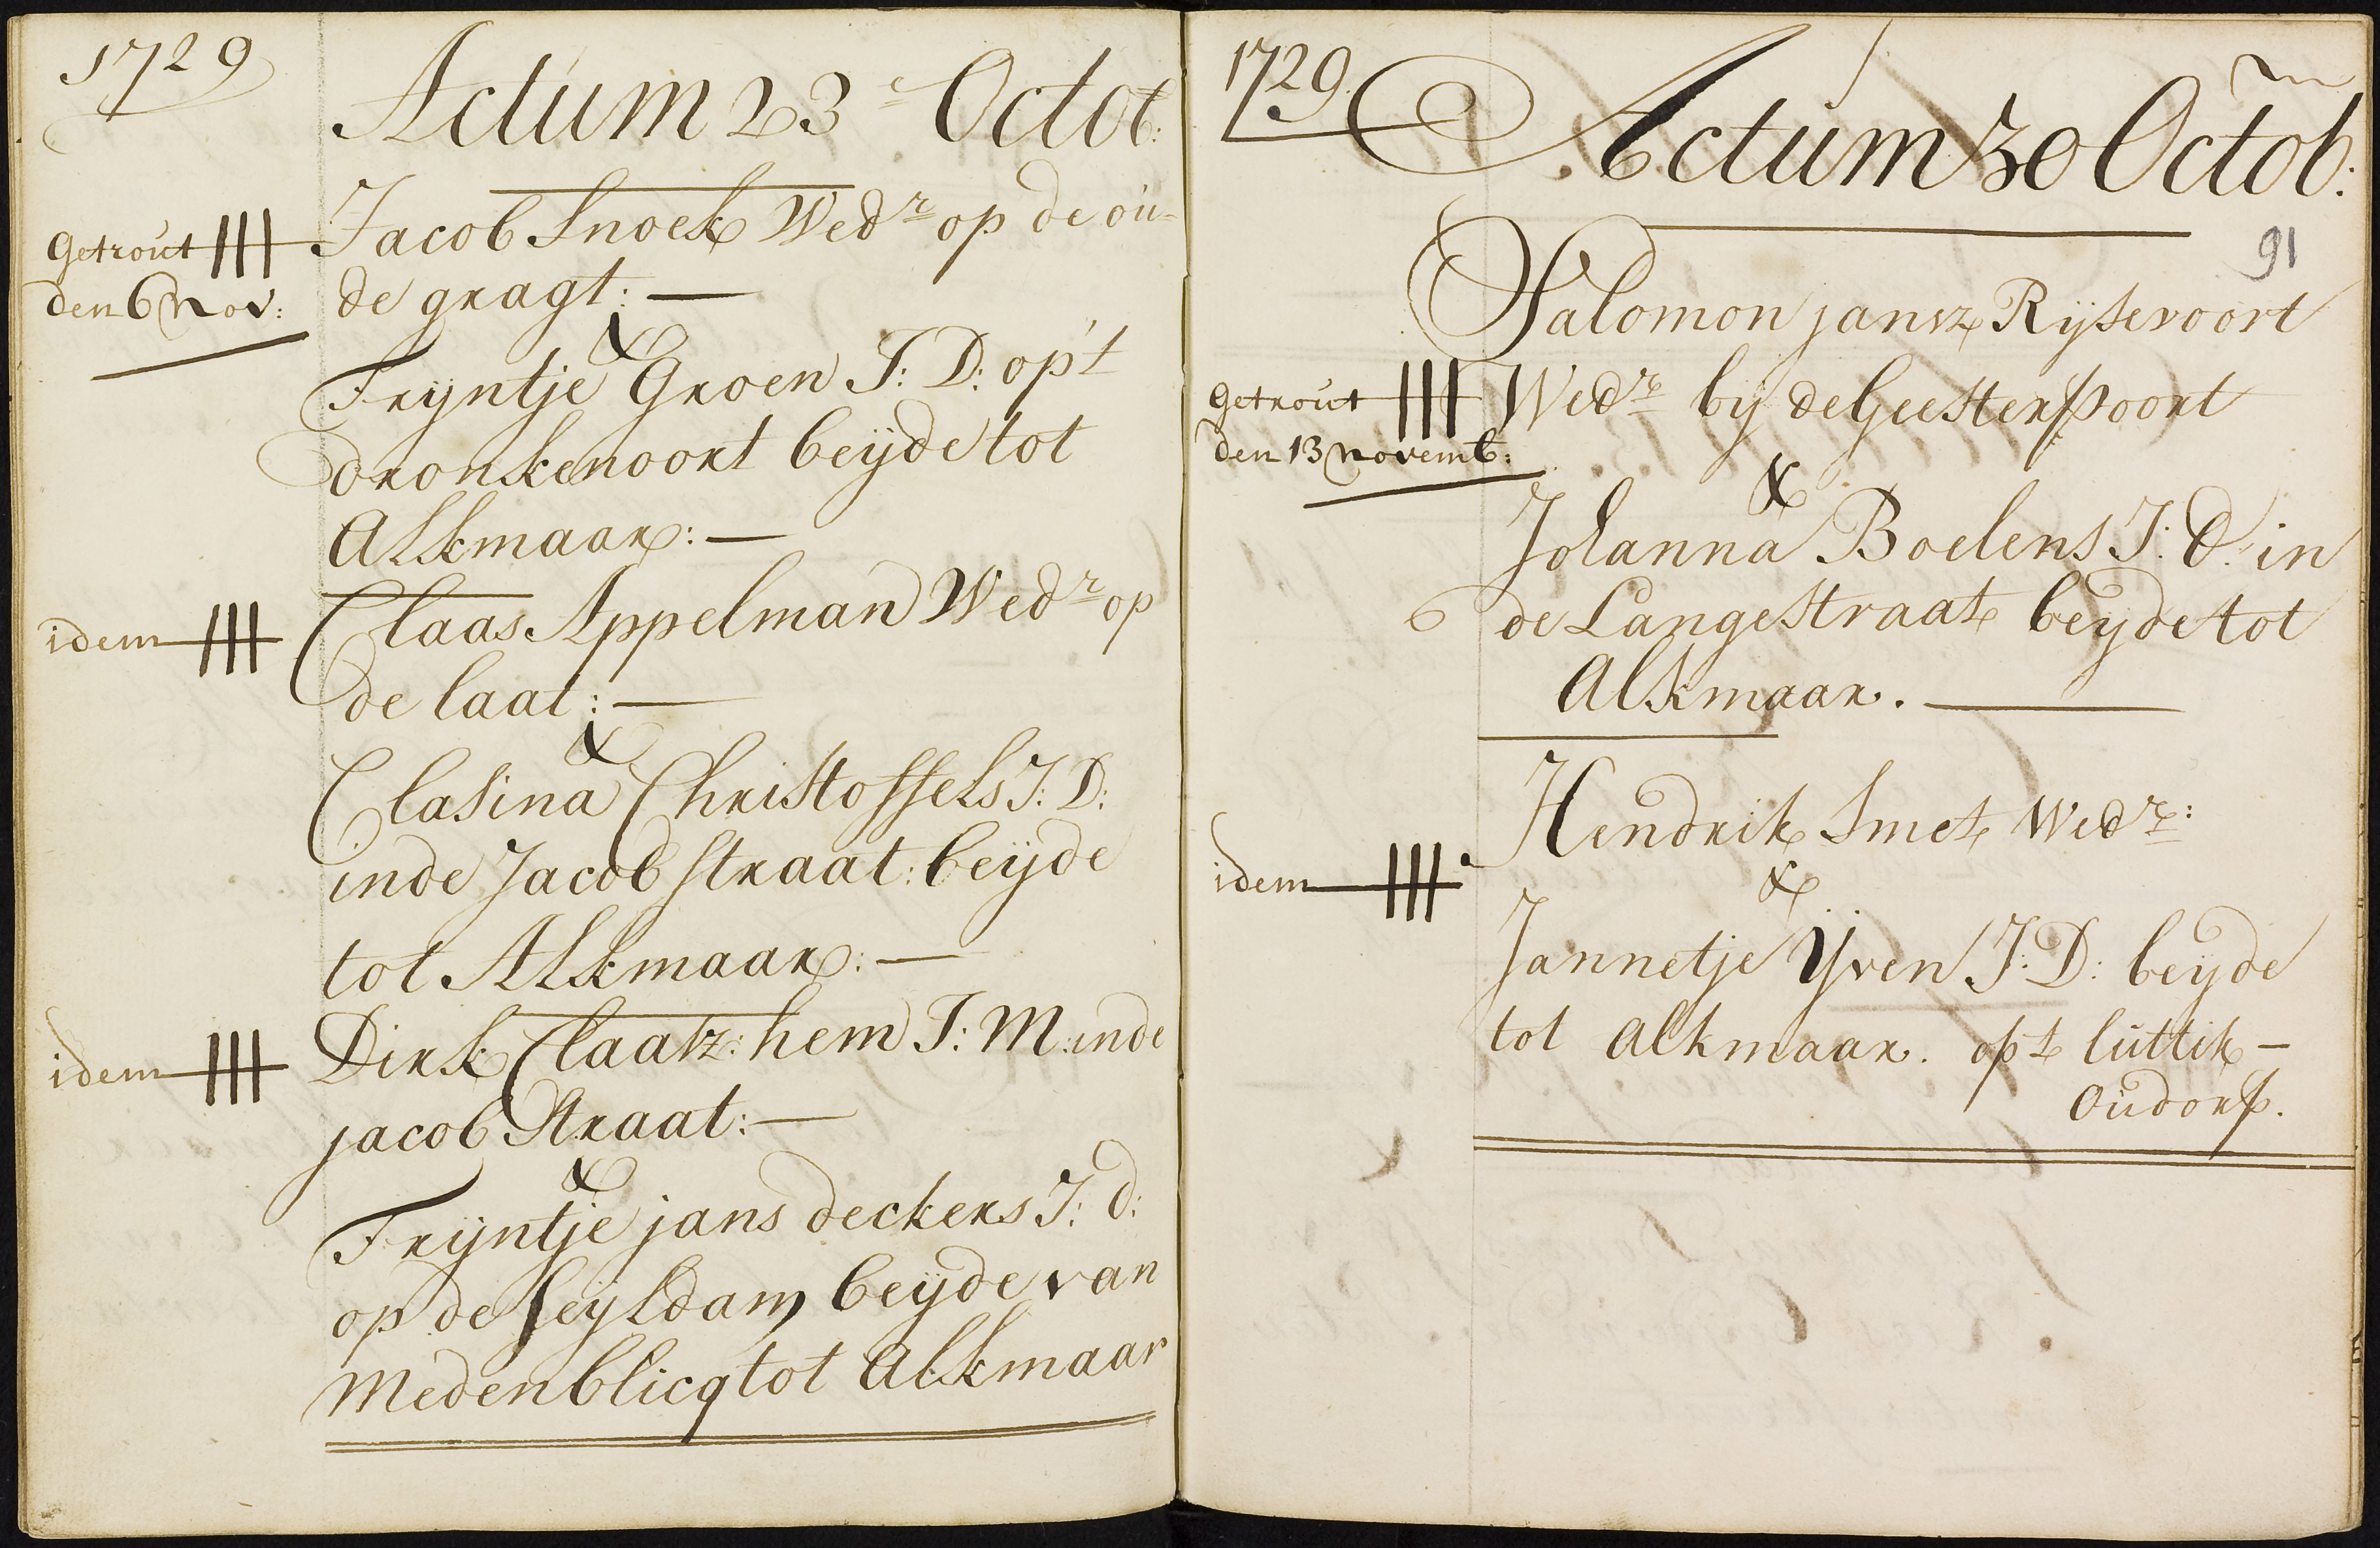 1729
Actum 23 Octob:
Getrout
den 6 Nov:
Jacob Snoek Wedr op de ou-
de gragt: —
&
Trijntje Groen J: D: op't
dronkenoort beijde tot
Alkmaar: —
idem
Claas Appelman Wedr op
de laat: —
&
Clasina Christoffels J: D:
inde Jacob straat: beijde
tot Alkmaar: —
idem
Dirk Claasz: hem J: M: inde
jacob Straat: —
&
Trijntje jans deckers J: d:
op de seijldam beijde van
Medenblicq tot Alkmaar
1729
Actum 30 Octob:
91
Salomon jansz Rijsevoort
Getrout
den 13 Novemb:
Wedr bij de Geesterpoort
&
Johanna Boelens J: D: in
de Langestraat beijde tot
Alkmaar. —
Hendrik Smet Wedr:
idem
&
Jannetje Yven J: D: beijde
tot alkmaar. opt luttik-
Oudorp.